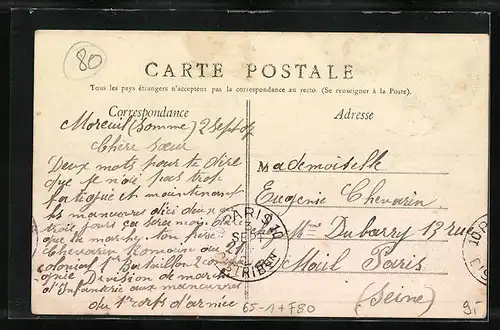 80
CARTE POSTALE
Tous les pays étrangers n'acceptent pas la correspondance au recto. (Se renseigner à la Poste).
Correspondance
Adresse
Moreuil (Somme) 2 Sept 07
Chère sœur
Deux mots pour te dire
que je n'ai pas trop
fatigue et maintenant
les manœuvres d'ici deux a
trois jours ça sera moin dur
que la marche Ton frère
Chevarin Romain au 21
colonial 1er Bataillon 2 compa
gnie Division de marche
d'Infanterie aux manœuvres
du 1er corps d'armée
Mademoiselle
Eugenie Chevarin
Mme Dubarry 13 rue
Mail Paris
(Seine)
PARIS
SEPT
DISTRIBON
65-1+F80
9.-